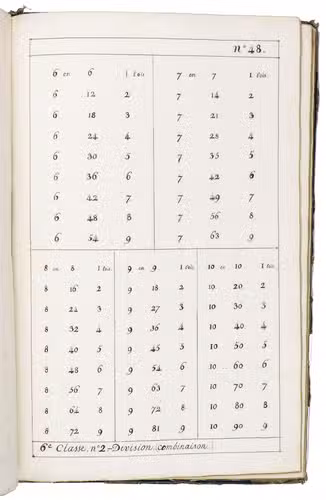 nº 48.
6 en 6 1 fois 7 en 7 1 fois
6 12 2 7 14 2
6 18 3 7 21 3
6 24 4 7 28 4
6 30 5 7 35 5
6 36 6 7 42 6
6 42 7 7 49 7
6 48 8 7 56 8
6 54 9 7 63 9
8 en 8 1 fois 9 en 9 1 fois 10 en 10 1 fois
8 16 2 9 18 2 10 20 2
8 24 3 9 27 3 10 30 3
8 32 4 9 36 4 10 40 4
8 40 5 9 45 5 10 50 5
8 48 6 9 54 6 10 60 6
8 56 7 9 63 7 10 70 7
8 64 8 9 72 8 10 80 8
8 72 9 9 81 9 10 90 9
6e Classe. nº 2 - Division combinaison